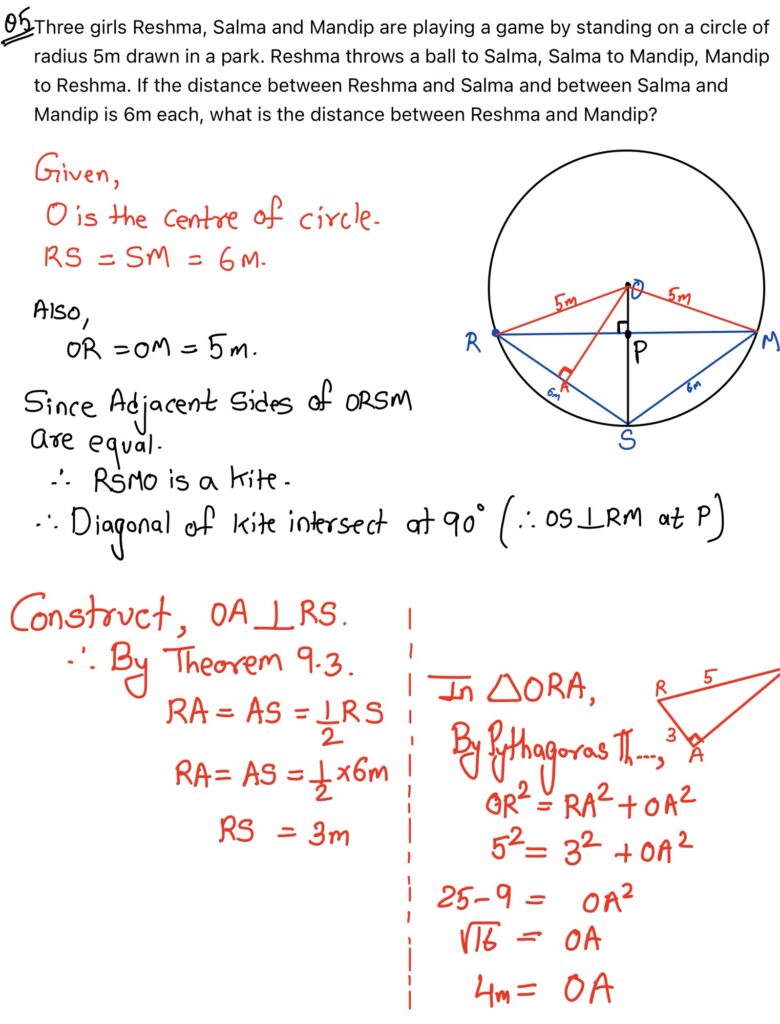 Q5 Three girls Reshma, Salma and Mandip are playing a game by standing on a circle of
radius 5m drawn in a park. Reshma throws a ball to Salma, Salma to Mandip, Mandip
to Reshma. If the distance between Reshma and Salma and between Salma and
Mandip is 6m each, what is the distance between Reshma and Mandip?
Given,
O is the centre of circle.
RS = SM = 6M.
Also,
OR = OM = 5m.
Since Adjacent Sides of ORSM
are equal.
∴ RSMO is a kite.
∴ Diagonal of kite intersect at 90° (∴ OS⊥RM at P)
O
5m
5m
R
P
M
A
6m
6m
S
Construct, OA⊥RS.
∴ By Theorem 9.3.
RA = AS = 1/2 RS
RA = AS = 1/2 x 6m
RS = 3m
In △ORA,
R
5
3
A
By Pythagoras Th...,
OR² = RA² + OA²
5² = 3² + OA²
25-9 = OA²
√16 = OA
4m = OA